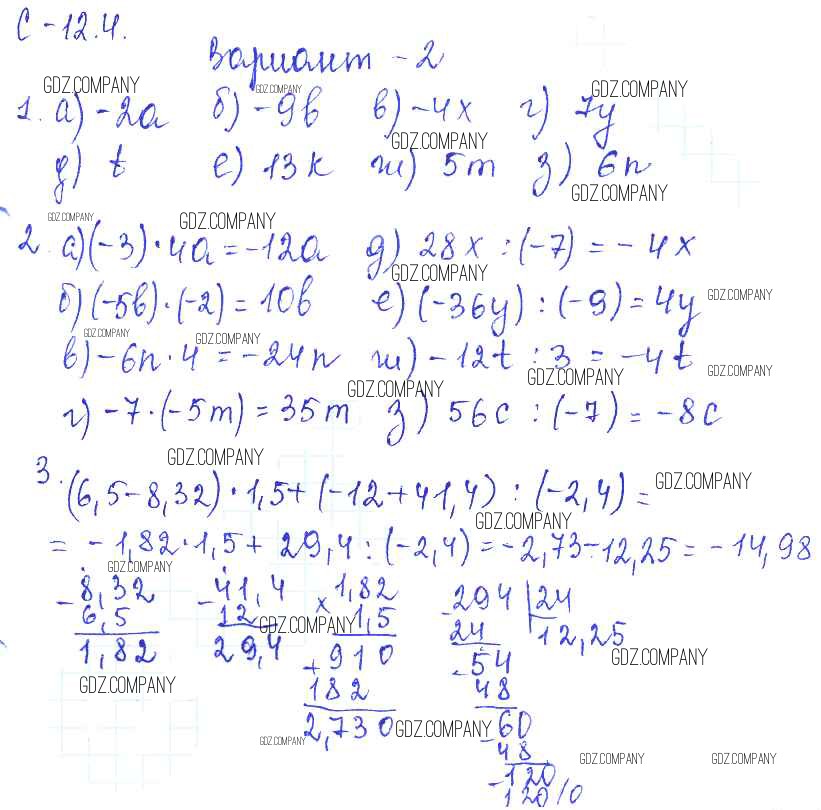 С - 12.4.
Вариант - 2
GDZ.COMPANY GDZ.COMPANY GDZ.COMPANY
1. а) -2a б) -9b в) -4x г) 7y
GDZ.COMPANY
д) t е) 13k ж) 5m з) 6n
GDZ.COMPANY
GDZ.COMPANY GDZ.COMPANY
2. а) (-3) · 4a = -12a д) 28x : (-7) = - 4x
GDZ.COMPANY
б) (-5b) · (-2) = 10b е) (-36y) : (-9) = 4y GDZ.COMPANY
GDZ.COMPANY GDZ.COMPANY
в) -6n · 4 = -24n ж) -12t : 3 = -4t
GDZ.COMPANY GDZ.COMPANY GDZ.COMPANY
г) -7 · (-5m) = 35m з) 56c : (-7) = -8c
GDZ.COMPANY
3. (6,5 - 8,32) · 1,5 + (-12 + 41,4) : (-2,4) =
GDZ.COMPANY
GDZ.COMPANY
= -1,82 · 1,5 + 29,4 : (-2,4) = -2,73 - 12,25 = -14,98
GDZ.COMPANY
- 8,32 - 41,4 x 1,82 - 294 | 24
6,5 12 1,5 24 12,25
GDZ.COMPANY
1,82 29,4 + 910 - 54
GDZ.COMPANY
GDZ.COMPANY
182 48
2,730 - 60
GDZ.COMPANY
GDZ.COMPANY
48
GDZ.COMPANY GDZ.COMPANY
- 120
120/0